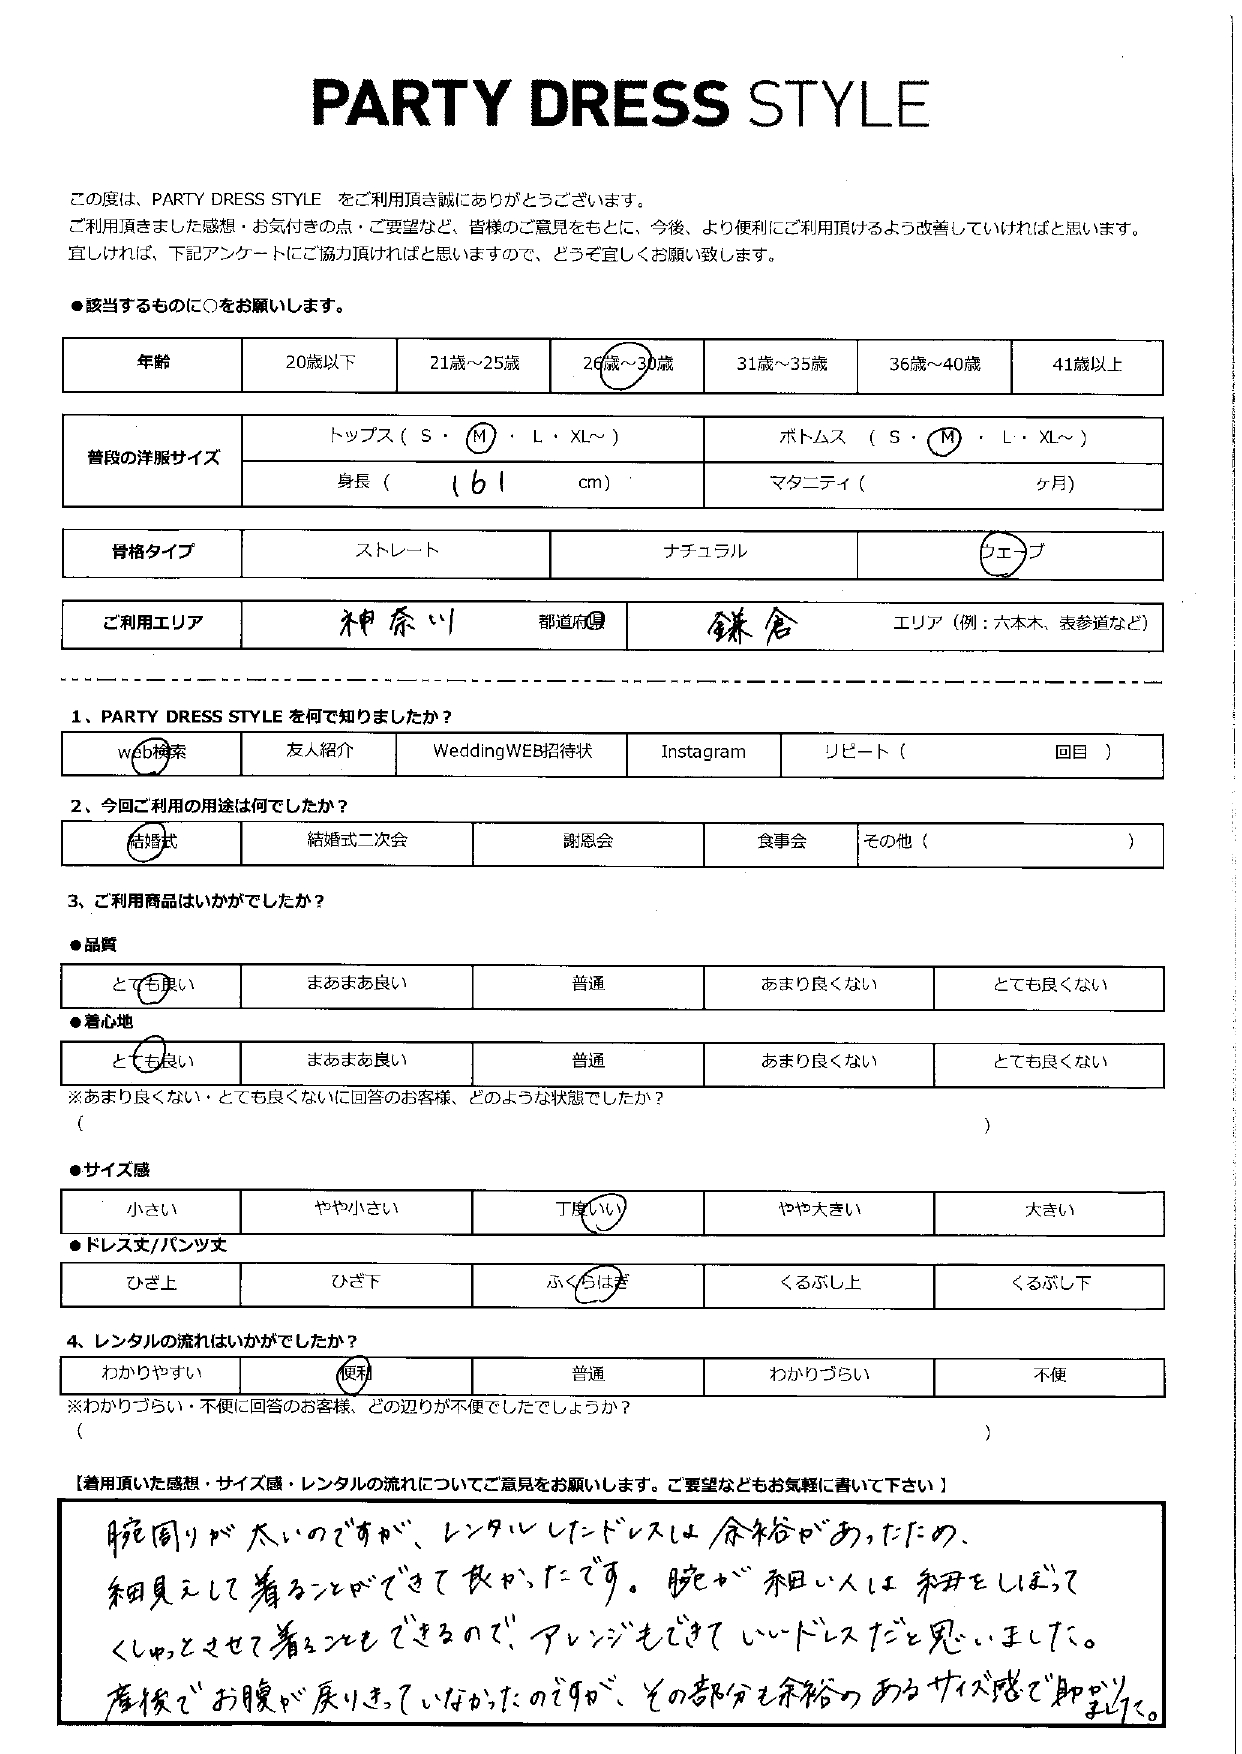 PARTY DRESS STYLE
この度は、PARTY DRESS STYLE をご利用頂き誠にありがとうございます。
ご利用頂きました感想・お気付きの点・ご要望など、皆様のご意見をもとに、今後、より便利にご利用頂けるよう改善していければと思います。
宜しければ、下記アンケートにご協力頂ければと思いますので、どうぞ宜しくお願い致します。
●該当するものに○をお願いします。
年齢 20歳以下 21歳～25歳 26歳～30歳 31歳～35歳 36歳～40歳 41歳以上
普段の洋服サイズ トップス ( S ・ M ・ L ・ XL～ ) ボトムス ( S ・ M ・ L ・ XL～ )
身長 ( 161 cm) マタニティ ( ヶ月)
骨格タイプ ストレート ナチュラル ウェーブ
ご利用エリア 神奈川 都道府県 鎌倉 エリア（例：六本木、表参道など）
1、PARTY DRESS STYLE を何で知りましたか？
web検索 友人紹介 WeddingWEB招待状 Instagram リピート ( 回目 )
2、今回ご利用の用途は何でしたか？
結婚式 結婚式二次会 謝恩会 食事会 その他 ( )
3、ご利用商品はいかがでしたか？
●品質
とても良い まあまあ良い 普通 あまり良くない とても良くない
●着心地
とても良い まあまあ良い 普通 あまり良くない とても良くない
※あまり良くない・とても良くないに回答のお客様、どのような状態でしたか？
( )
●サイズ感
小さい やや小さい 丁度いい やや大きい 大きい
●ドレス丈/パンツ丈
ひざ上 ひざ下 ふくらはぎ くるぶし上 くるぶし下
4、レンタルの流れはいかがでしたか？
わかりやすい 便利 普通 わかりづらい 不便
※わかりづらい・不便に回答のお客様、どの辺りが不便でしたでしょうか？
( )
【着用頂いた感想・サイズ感・レンタルの流れについてご意見をお願いします。ご要望などもお気軽に書いて下さい】
腕周りが太いのですが、レンタルしたドレスは余裕があったため、
細見えして着ることができて良かったです。腕が細い人は紐をしぼって
くしゅっとさせて着ることもできるので、アレンジもできていいドレスだと思いました。
産後でお腹が戻りきっていなかったのですが、その部分も余裕のあるサイズ感で助かりました。